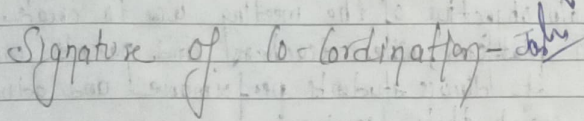 Signature of Co-Cordination - John